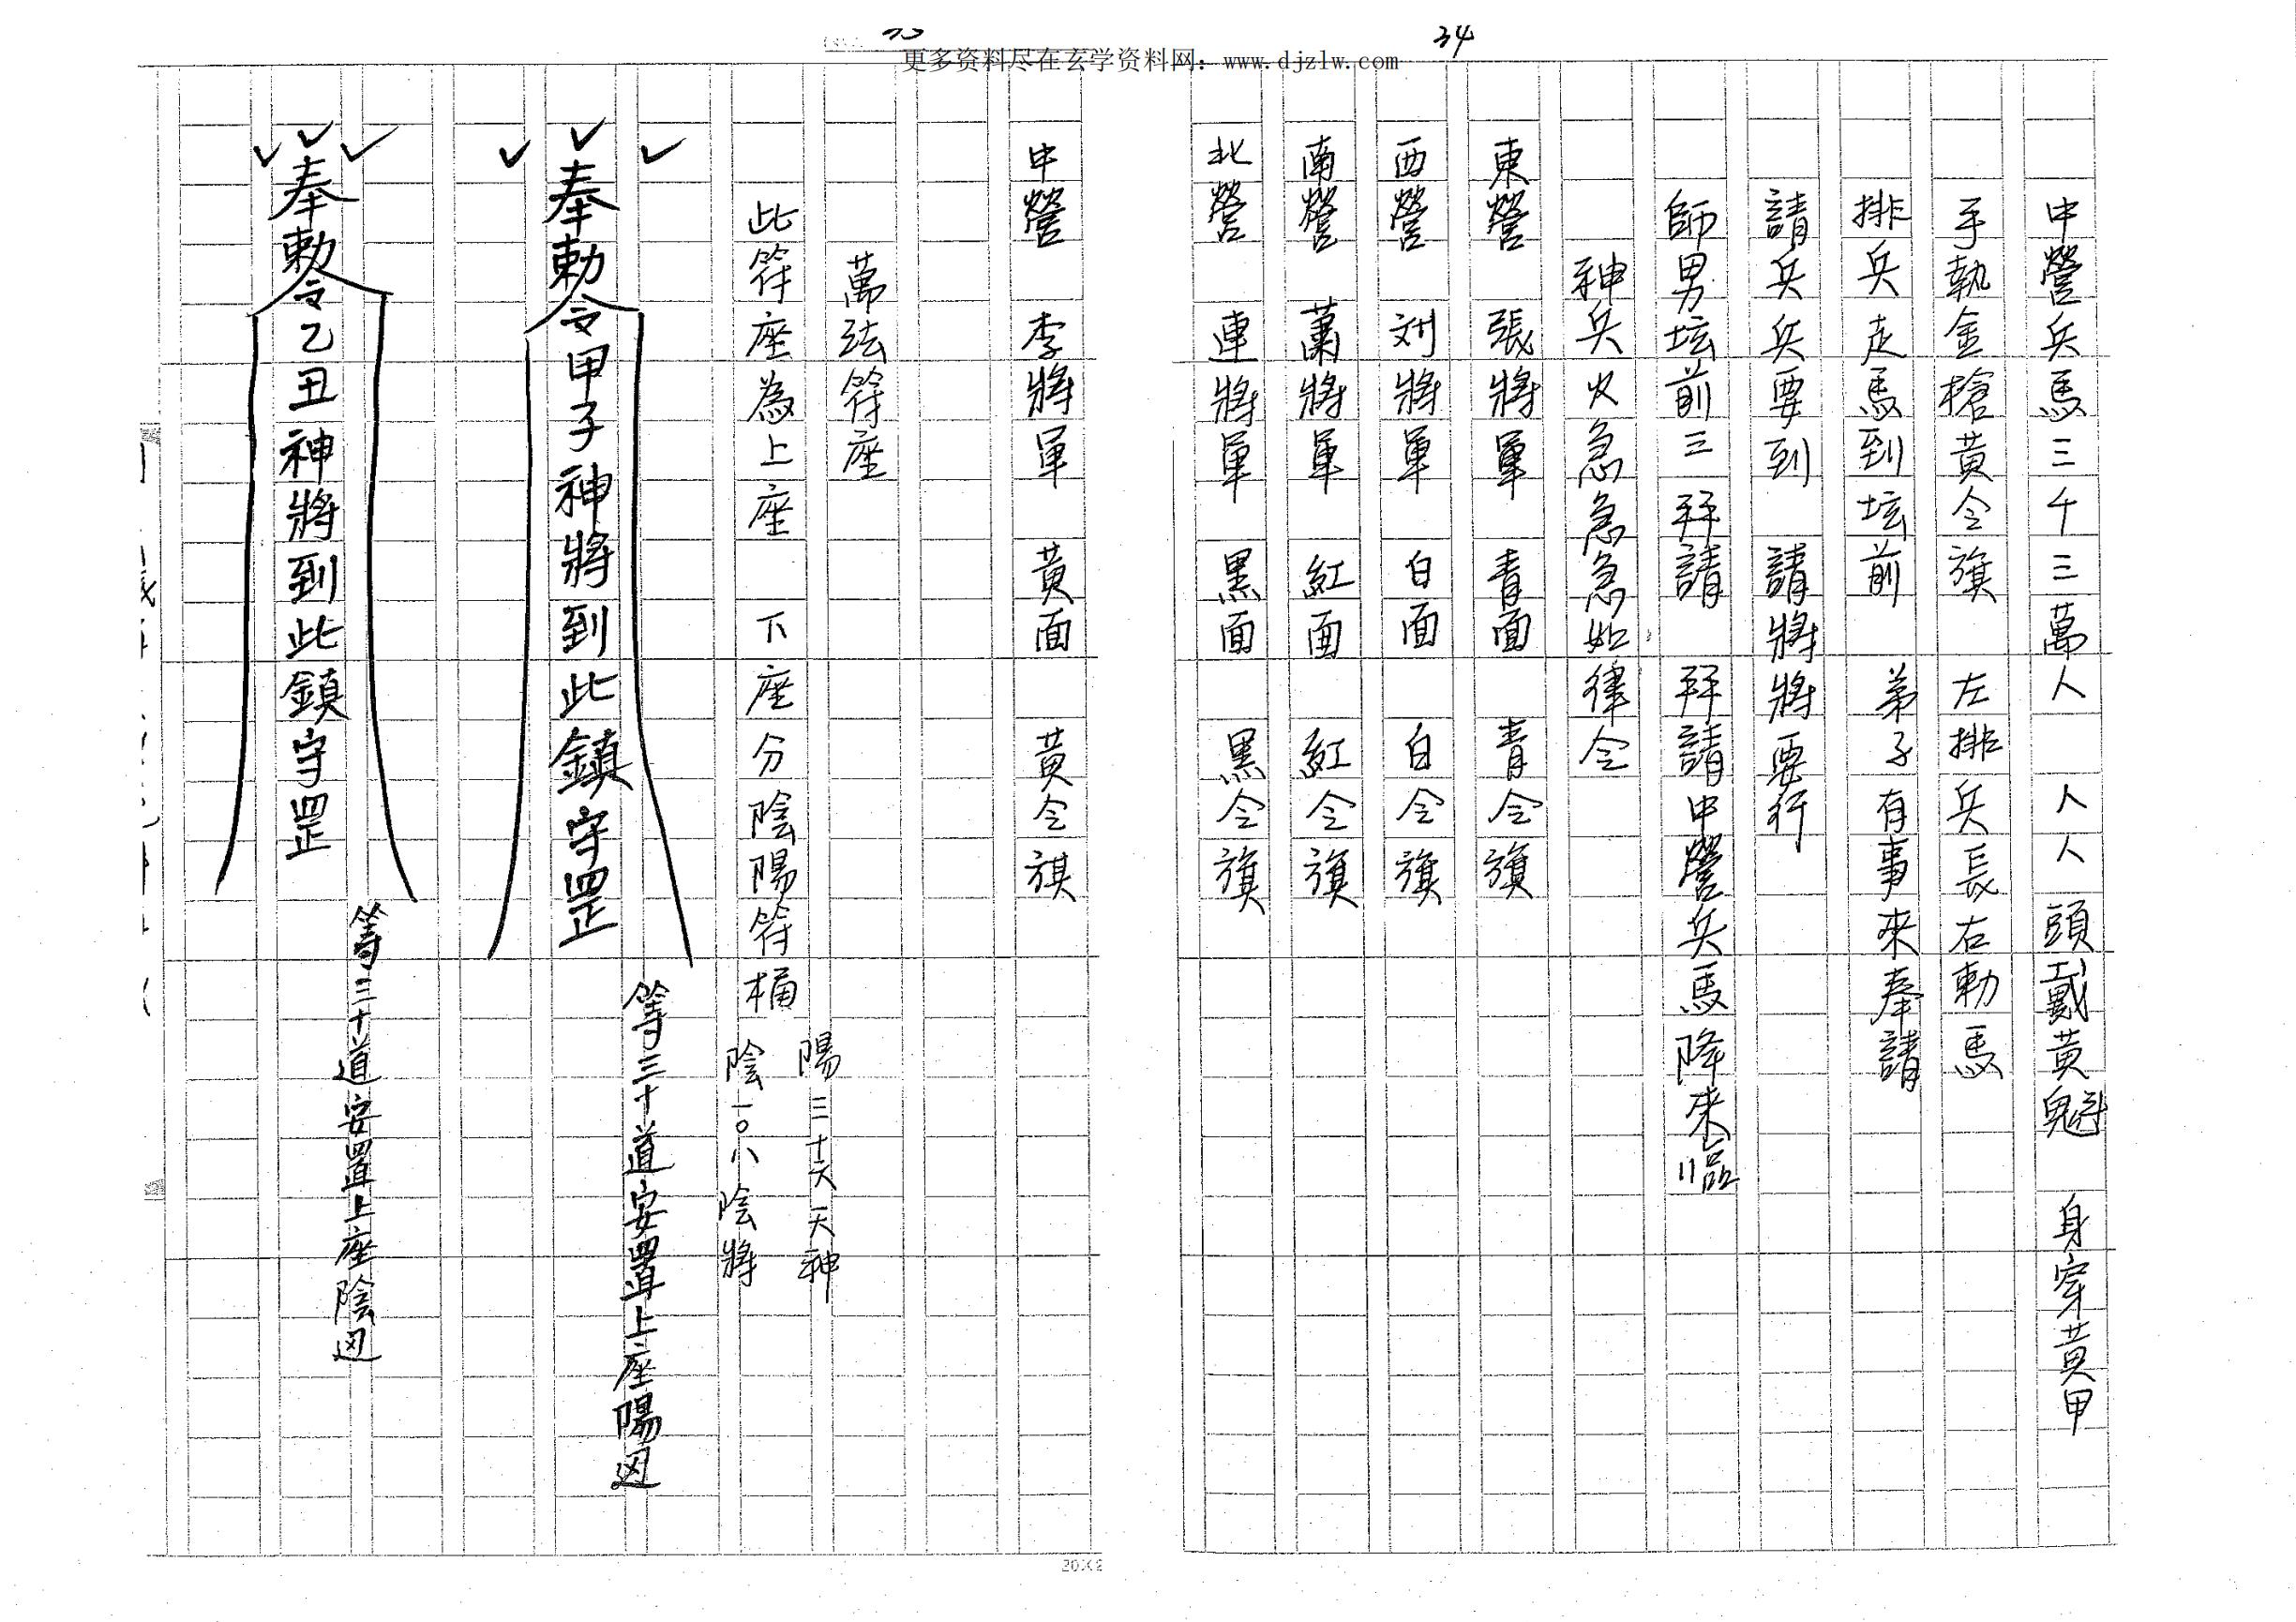 更多资料尽在玄学资料网：www.djzlw.com
34
中營兵馬三千三萬人　人人頭戴黃魁　身穿黃甲
手執金槍黃令旗　左排兵長右勅馬
排兵走馬到坛前　弟子有事來奉請
請兵兵要到　請將將要行
師男坛前三拜請　拜請中營兵馬降來臨
神兵火急急急如律令
東營　張將軍　青面　青令旗
西營　刘將軍　白面　白令旗
南營　蕭將軍　紅面　紅令旗
北營　連將軍　黑面　黑令旗
中營　李將軍　黃面　黃令旗
萬法符座
此符座為上座　下座分陰陽符桶
陽三十六天神
陰一〇八陰將
奉勅令甲子神將到此鎮守罡
等三十道安置上座陽
奉勅令乙丑神將到此鎮守罡
等三十道安置上座陰